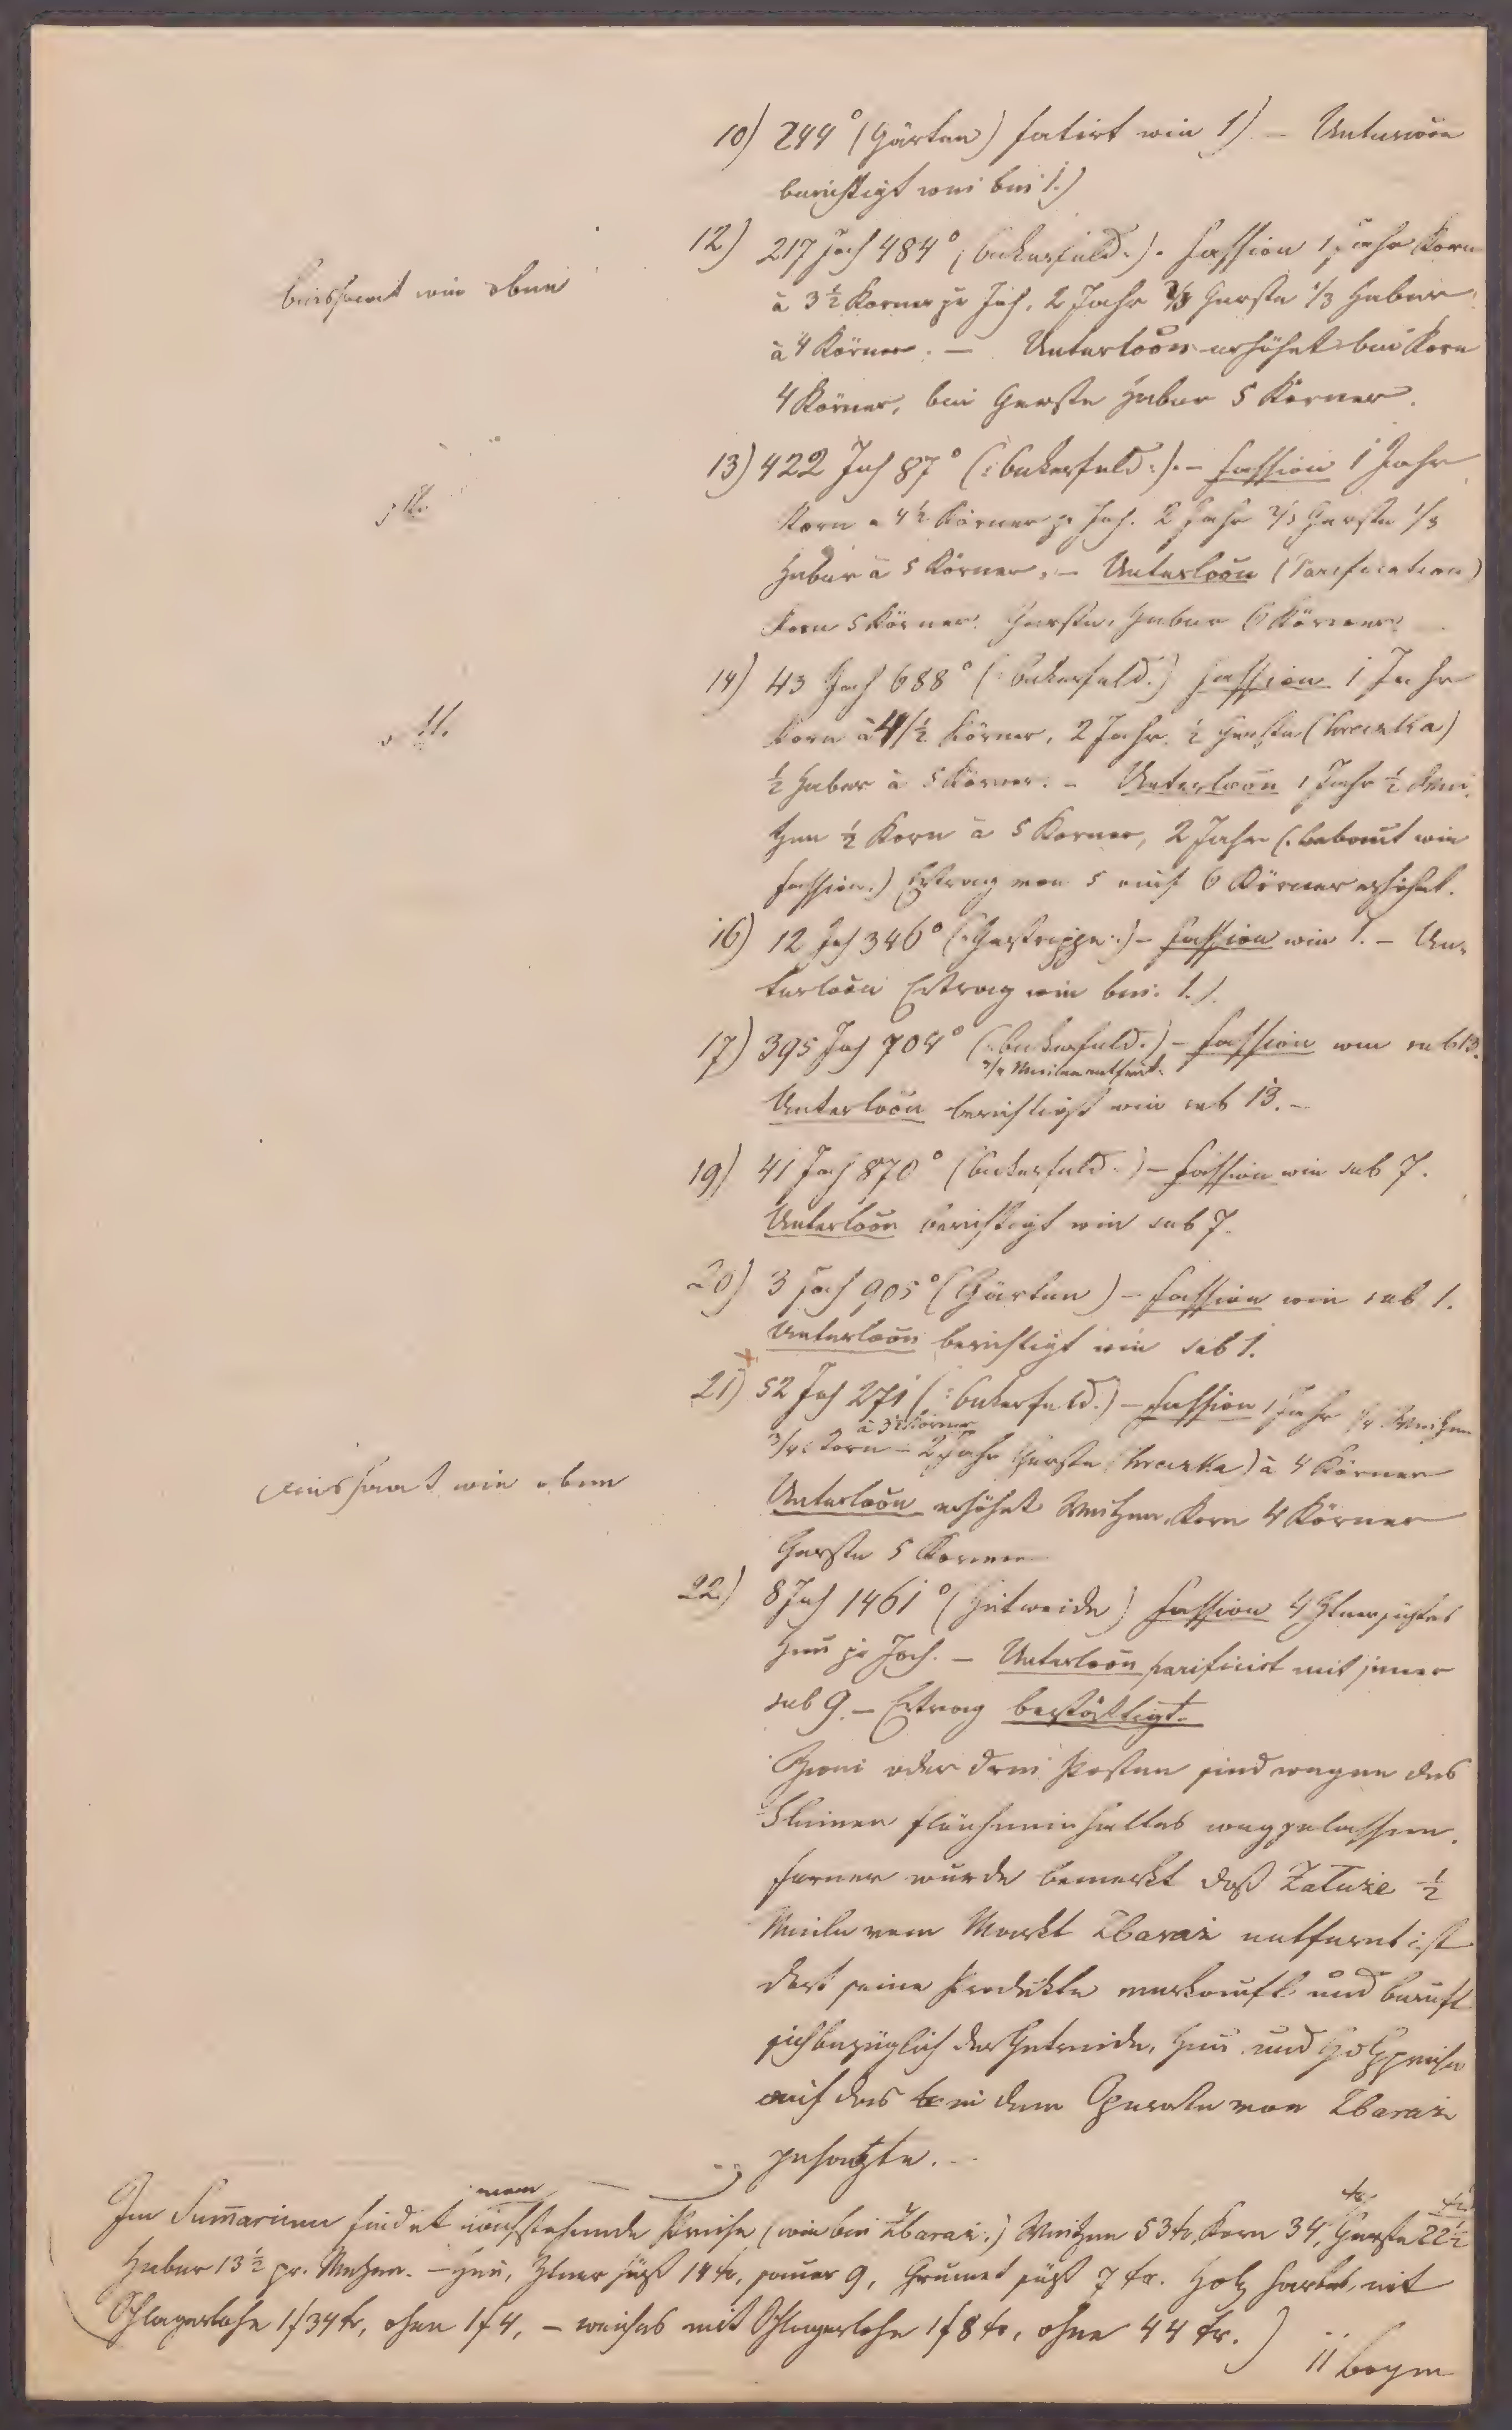 10) 244° (Gärten) fatirt wie 1) – Untersuön
berichtigt wie bei 1.)
12) 217 Joch 484° (: Ackerfeld :). Fassion 1 Jahr Korn
Aussaat wie oben
à 3½ Körner pr Joch. 2 Jahr ⅔ Gerste ⅓ Haber
à 4 Körner. – Untersuön erhöhet bei Korn
4 Körner, bei Gerste Haber 5 Körner.
13) 422 Joch 87° (: Ackerfeld :). – Fassion 1 Jahr
Korn a 4½ Körner pr Joch. 2 Jahr ⅔ Gerste ⅓
Haber à 5 Körner. – Untersuön (Parification)
Korn 5 Körner. Gerste, Haber 6 Körner.
14) 43 Joch 688° (: Ackerfeld.) Fassion 1 Jahr
Korn à 4½ Körner, 2 Jahr. ½ Gerste (hreczka)
½ Haber à 5 Körner. – Untersuön 1 Jahr ½ Wei-
tzen ½ Korn à 5 Körner, 2 Jahr (: bebaut wie
Fassion.) Ertrag von 5 auf 6 Körner erhöhet.
16) 12 Joch 346° (: Gestrippe :) – Fassion wie 1. – Un-
tersuön Ertrag wie bei 1.)
17) 395 Joch 704° (: Ackerfeld.) – Fassion wie sub 13.
¾ Meilen entfernt.
Untersuön berichtigt wie sub 13. –
19) 41 Joch 870° (Ackerfeld :) – Fassion wie sub 7.
Untersuön berichtigt wie sub 7.
20) 3 Joch 905° (Gärten) – Fassion wie sub 1.
Untersuön berichtigt wie sub 1.
21) 52 Joch 271 (: Ackerfeld.) – Fassion 1 Jahr ¼ Weitzen
à 3½ Körner
¾ Korn – 2 Jahr Gerste (hreczka) à 4 Körner
Aussaat wie oben
Untersuön erhöhet Weitzen, Korn 4 Körner
Gerste 5 Körner
22) 8 Joch 1461° (Hutweide) Fassion 4 Ztner süßes
Heu pr Joch. – Untersuön parificirt mit jener
sub 9. – Ertrag bestättigt.
Zwei oder drei Posten sind wegen des
kleinen Flächeninhaltes weggelassen.
Ferner wurde bemerkt daß Załuże ½
Meile vom Markt Zbaraż entfernt ist
dort seine Produkte verkauft und beruft
sich bezüglich der Getreide, Heu und Holzpreise
auf das bei dem Operate von Zbaraż
gesagte. –
man
Im Sumarium findet nachstehende Preise (wie bei Zbaraż:) Weitzen 53 kr, Korn 34 kr, Gerste 22½ kr
Haber 13½ pr. Metzen. – Heu, Ztner süß 14 kr, sauer 9, Grumet süß 7 kr. Holz hartes, mit
Schlagerlohn 1 f 34 kr, ohne 1 f 4, – weiches mit Schlagerlohn 1 f 8 kr, ohne 44 kr.)